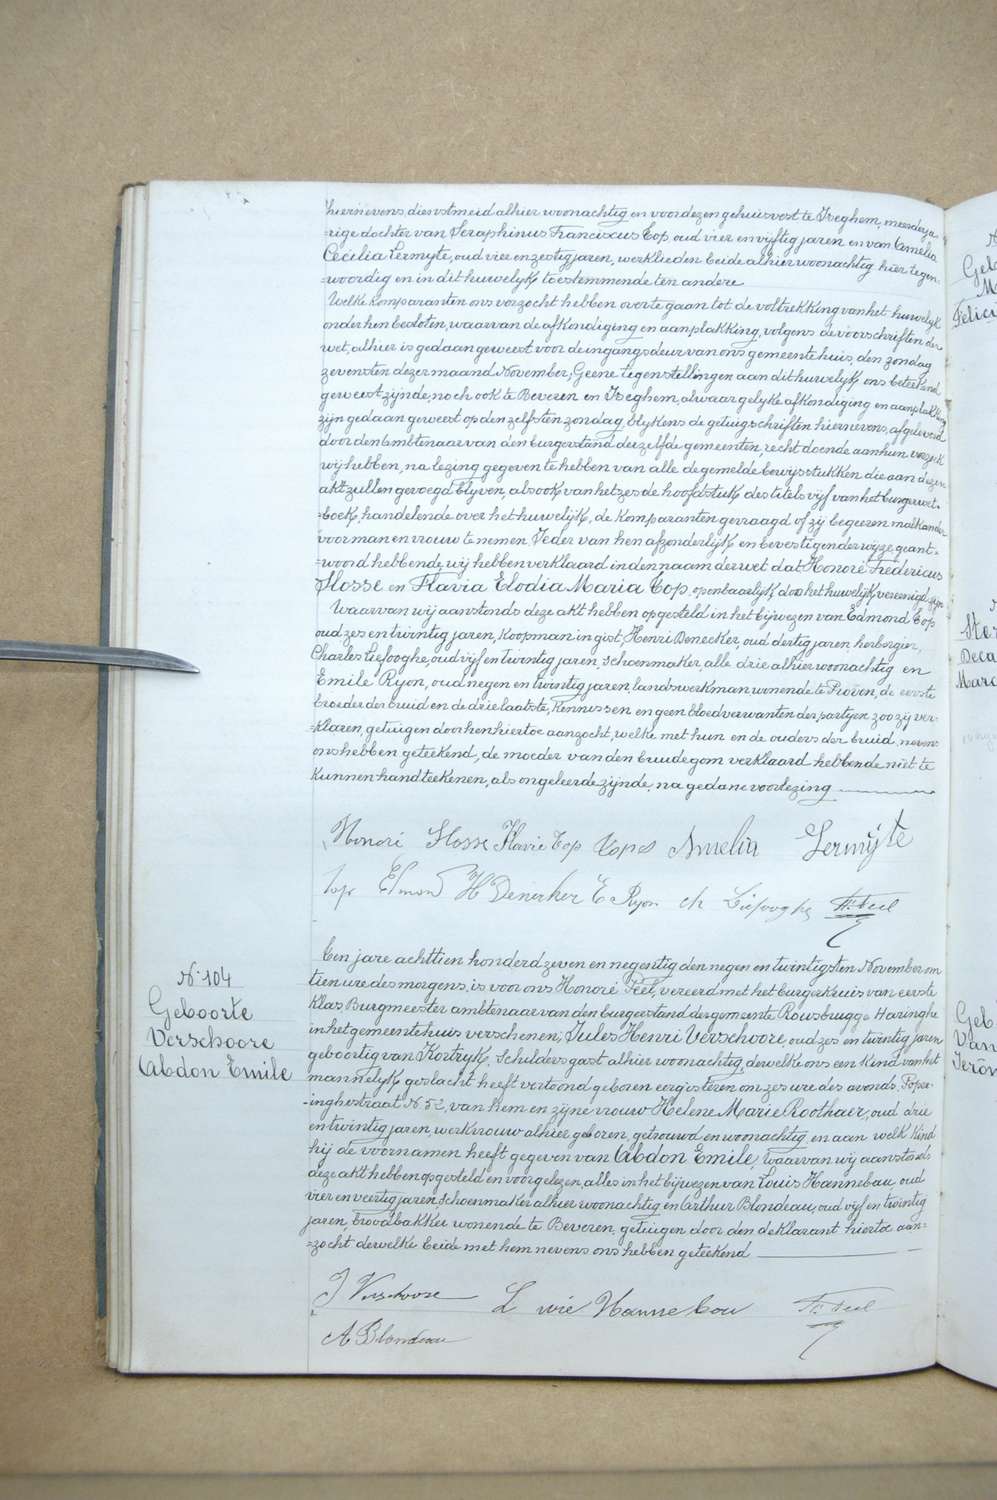 hiernevens, dienstmeid alhier woonachtig en voor dezen gehuisvest te Iseghem, meerderja
=rige dochter van Seraphinus Franciscus Top, oud vier en vyftig jaren en van Amelia
Cecilia Lermyte, oud vier en zestig jaren, werklieden beide alhier woonachtig hier tegen-
=woordig en in dit huwelyk toestemmende ten andere
Welke komparanten ons verzocht hebben over te gaan tot de voltrekking van het huwelyk
onder hen besloten, waarvan de afkondiging en aanplakking, volgens de voorschriften der
wet, alhier is gedaan geweest voor de ingangsdeur van ons gemeentehuis, den zondag
zevensten dezer maand November; Geene tegenstellingen aan dit huwelyk ons beteekend
geweest zijnde, noch ook te Beveren en Iseghem, alwaar gelyke afkondiging en aanplakking
zijn gedaan geweest op den zelfsten zondag, blykens de getuigschriften hiernevens, afgeleverd
door den Ambtenaar van den burgerstand dezelfde gemeenten, recht doende aan hun verzoek
wij hebben, na lezing gegeven te hebben van alle de gemelde bewysstukken die aan dezen
akt zullen gevoegd blyven, alsook van het zesde hoofdstuk des titels vyf van het burgerwet-
=boek, handelende over het huwelijk, de komparanten gevraagd of zij begeeren malkander
voor man en vrouw te nemen. Ieder van hen afzonderlijk en bevestigenderwijze geant-
=woord hebbende, wij hebben verklaard in den naam der wet dat Honoré Fredericus
Hosse en Flavia Elodia Maria Top, openbaarlyk door het huwelyk vereenigd zijn
Waarvan wij aanstonds deze akt hebben opgesteld in het bijwezen van Edmond Top
oud zes en twintig jaren, koopman in gist, Henri Denecker, oud dertig jaren, herbergier,
Charles Liefooghe, oud vijf en twintig jaren, schoenmaker, alle drie alhier woonachtig en
Emile Ryon, oud negen en twintig jaren, landswerkman wonende te Proven, de eerste
broeder der bruid en de drie laatste, kennissen en geen bloedverwanten der partyen zoo zij ver-
=klaren, getuigen door hen hiertoe aanzocht, welke met hun en de ouders der bruid, nevens
ons hebben geteekend, de moeder van den bruidegom verklaard hebbende niet te
kunnen handteekenen, als ongeleerde zijnde, na gedane voorlezing
Honoré Hosse Flavie Top Top S Amelia Lermÿte
Top Edmond H Denecker E Ryon ch Liefooghe Hré Feel
Ten jare achttien honderd zeven en negentig den negen en twintigsten November om
tien ure des morgens, is voor ons Honoré Feel, vereerd met het burgerkruis van eerste
klas Burgmeester ambtenaar van den burgerstand der gemeente Rousbrugge Haringhe
in het gemeentehuis verschenen, Jules Henri Verschoore, oud zes en twintig jaren
geboortig van Kortryk, schildersgast alhier woonachtig, dewelke ons een kind van het
mannelyk geslacht heeft vertoond geboren eergisteren om zes ure des avonds, Poper-
-inghestraat N 52, van hem en zijne vrouw Helene Marie Roothaer, oud drie
en twintig jaren, werkvrouw alhier geboren, getrouwd en woonachtig, en aan welk kind
hij de voornamen heeft gegeven van Abdon Emile; Waarvan wij aanstonds
deze akt hebben opgesteld en voorgelezen, alles in het bijwezen van Louis Hannebau, oud
vier en veertig jaren, schoenmaker alhier woonachtig en Arthur Blondeau, oud vyf en twintig
jaren, broodbakker wonende te Beveren, getuigen door den deklarant hiertoe aan-
=zocht dewelke beide met hem nevens ons hebben geteekend
J Verschoore L wie Hannebou Hré Feel
A Blondeau
N. 104
Geboorte
Verschoore
Abdon Emile